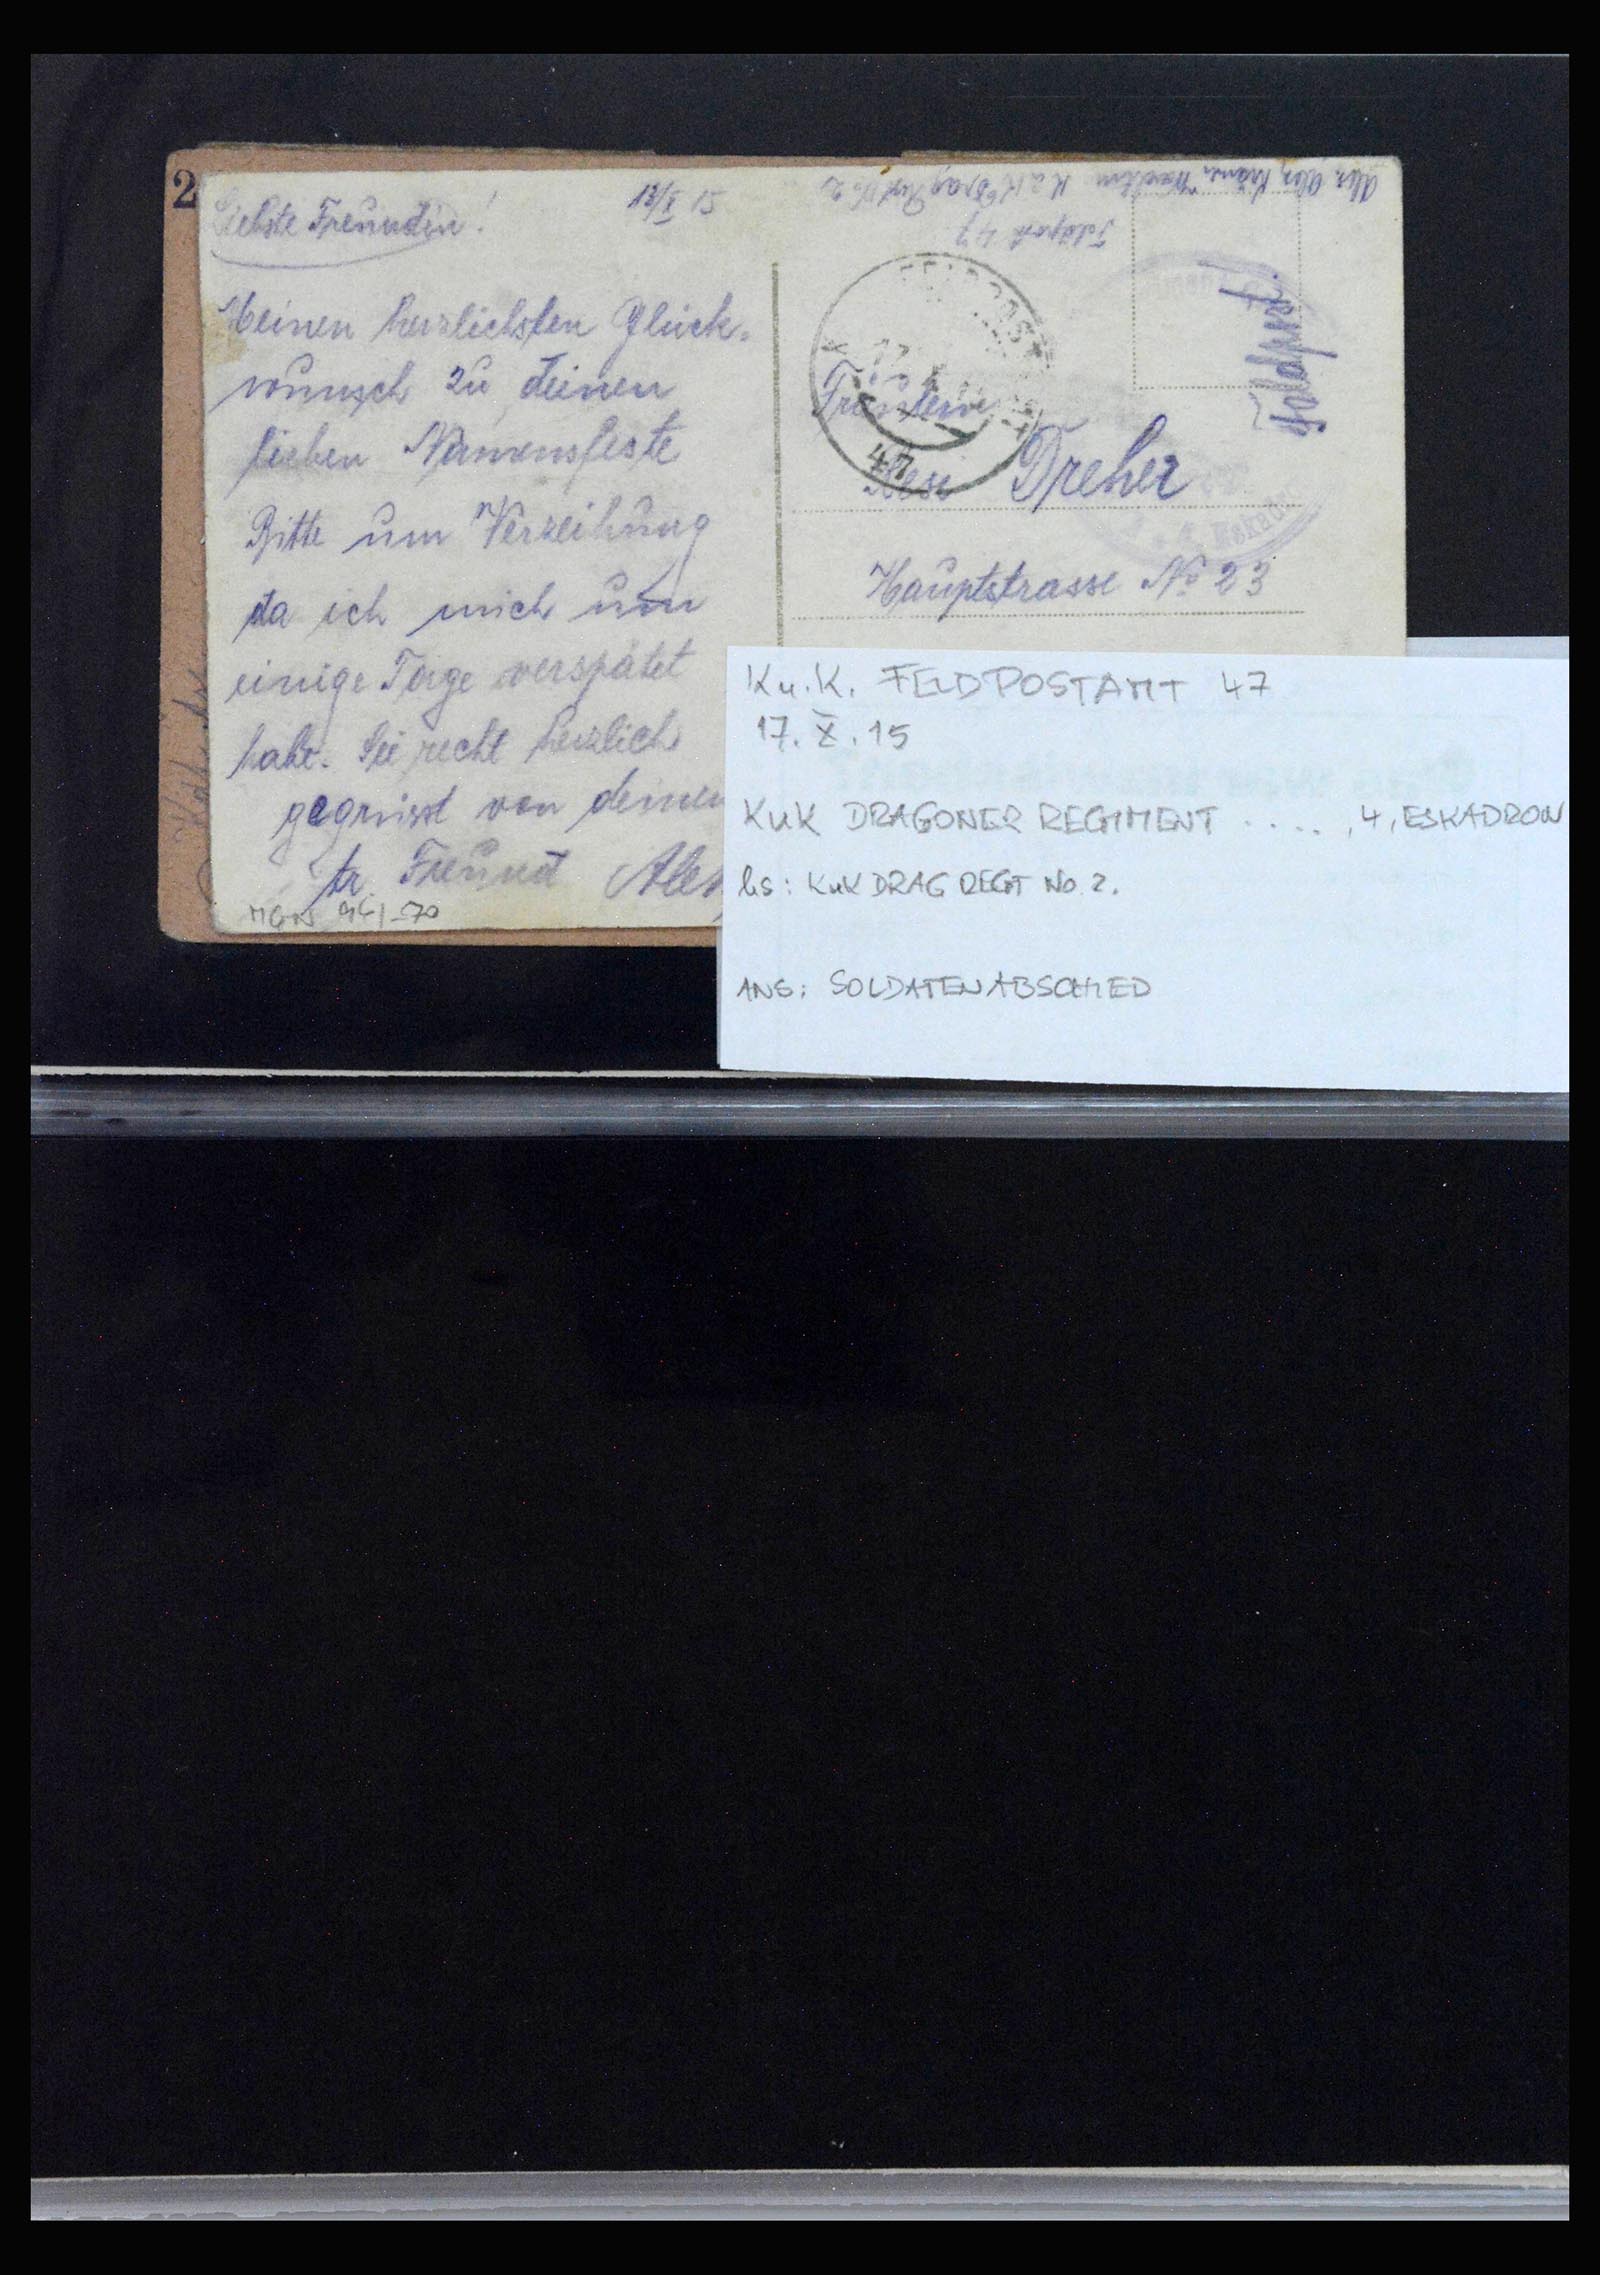 2
Liebste Freundin!
13/X 15
Meinen herzlichsten Glück-
wunsch zu deinen
lieben Namensfeste
Bitte um Verzeihung
da ich mich um
einige Tage verspätet
habe. Sei recht herzlich
gegrüsst von deinem
tr. Freund Alex
MGN 941-70
Abs. Alex. Krämer
K u K Drag Regt No 2
Feldpost 47
Feldpost.
FELDPOST
47
Fräulein
Resi Dreher
Hauptstrasse No 23
4. Eskadron
K.u.K. FELDPOSTAMT 47
17. X. 15
KuK DRAGONER REGIMENT . . . . , 4, ESKADRON
hs: KuK DRAG REGT No. 2.
ANS: SOLDATENABSCHIED